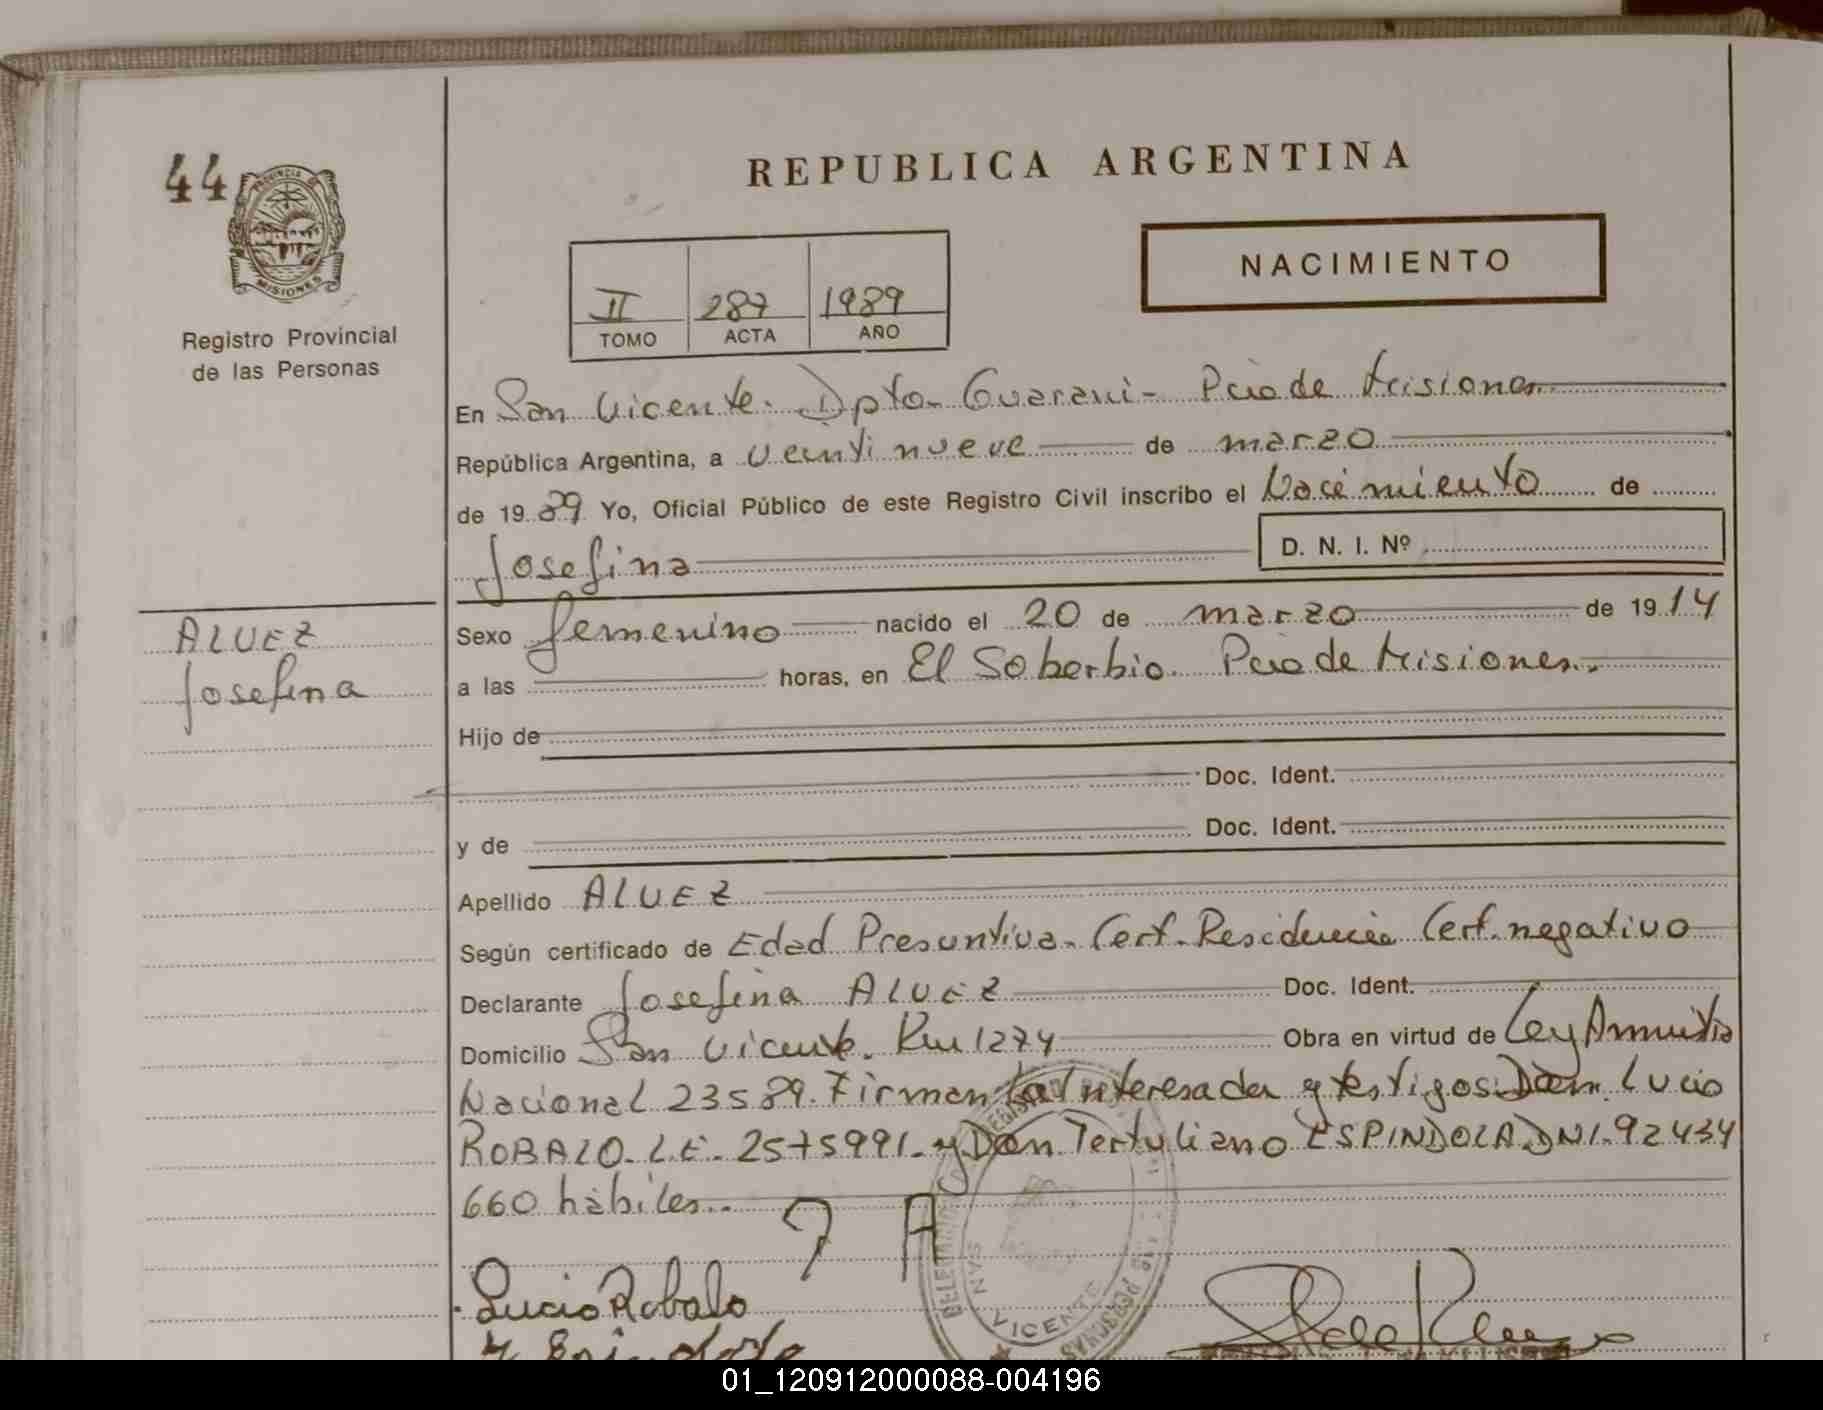 44
PROVINCIA DE
MISIONES
Registro Provincial
de las Personas
REPUBLICA ARGENTINA
NACIMIENTO
II 287 1989
TOMO ACTA AÑO
En San Vicente. Dpto. Guarani - Pcia de Misiones
República Argentina, a veinti nueve de marzo
de 1989 Yo, Oficial Público de este Registro Civil inscribo el Nacimiento de
Josefina
D. N. I. Nº
ALVEZ
Josefina
Sexo femenino nacido el 20 de marzo de 1914
a las horas, en El Soberbio. Pcia de Misiones.
Hijo de
Doc. Ident.
y de Doc. Ident.
Apellido ALVEZ
Según certificado de Edad Presuntiva. Cert. Residencia Cert. negativo
Declarante Josefina ALVEZ Doc. Ident.
Domicilio San Vicente. Km 1274 Obra en virtud de Ley Amnistia
Nacional 23589. Firman la Interesada y testigos: Don Lucio
ROBALO. L.E. 2575991. y Don Tertuliano ESPINDOLA DNI. 92434
660 hábiles..
J A
Lucio Robalo
VICENTE
01_120912000088-004196